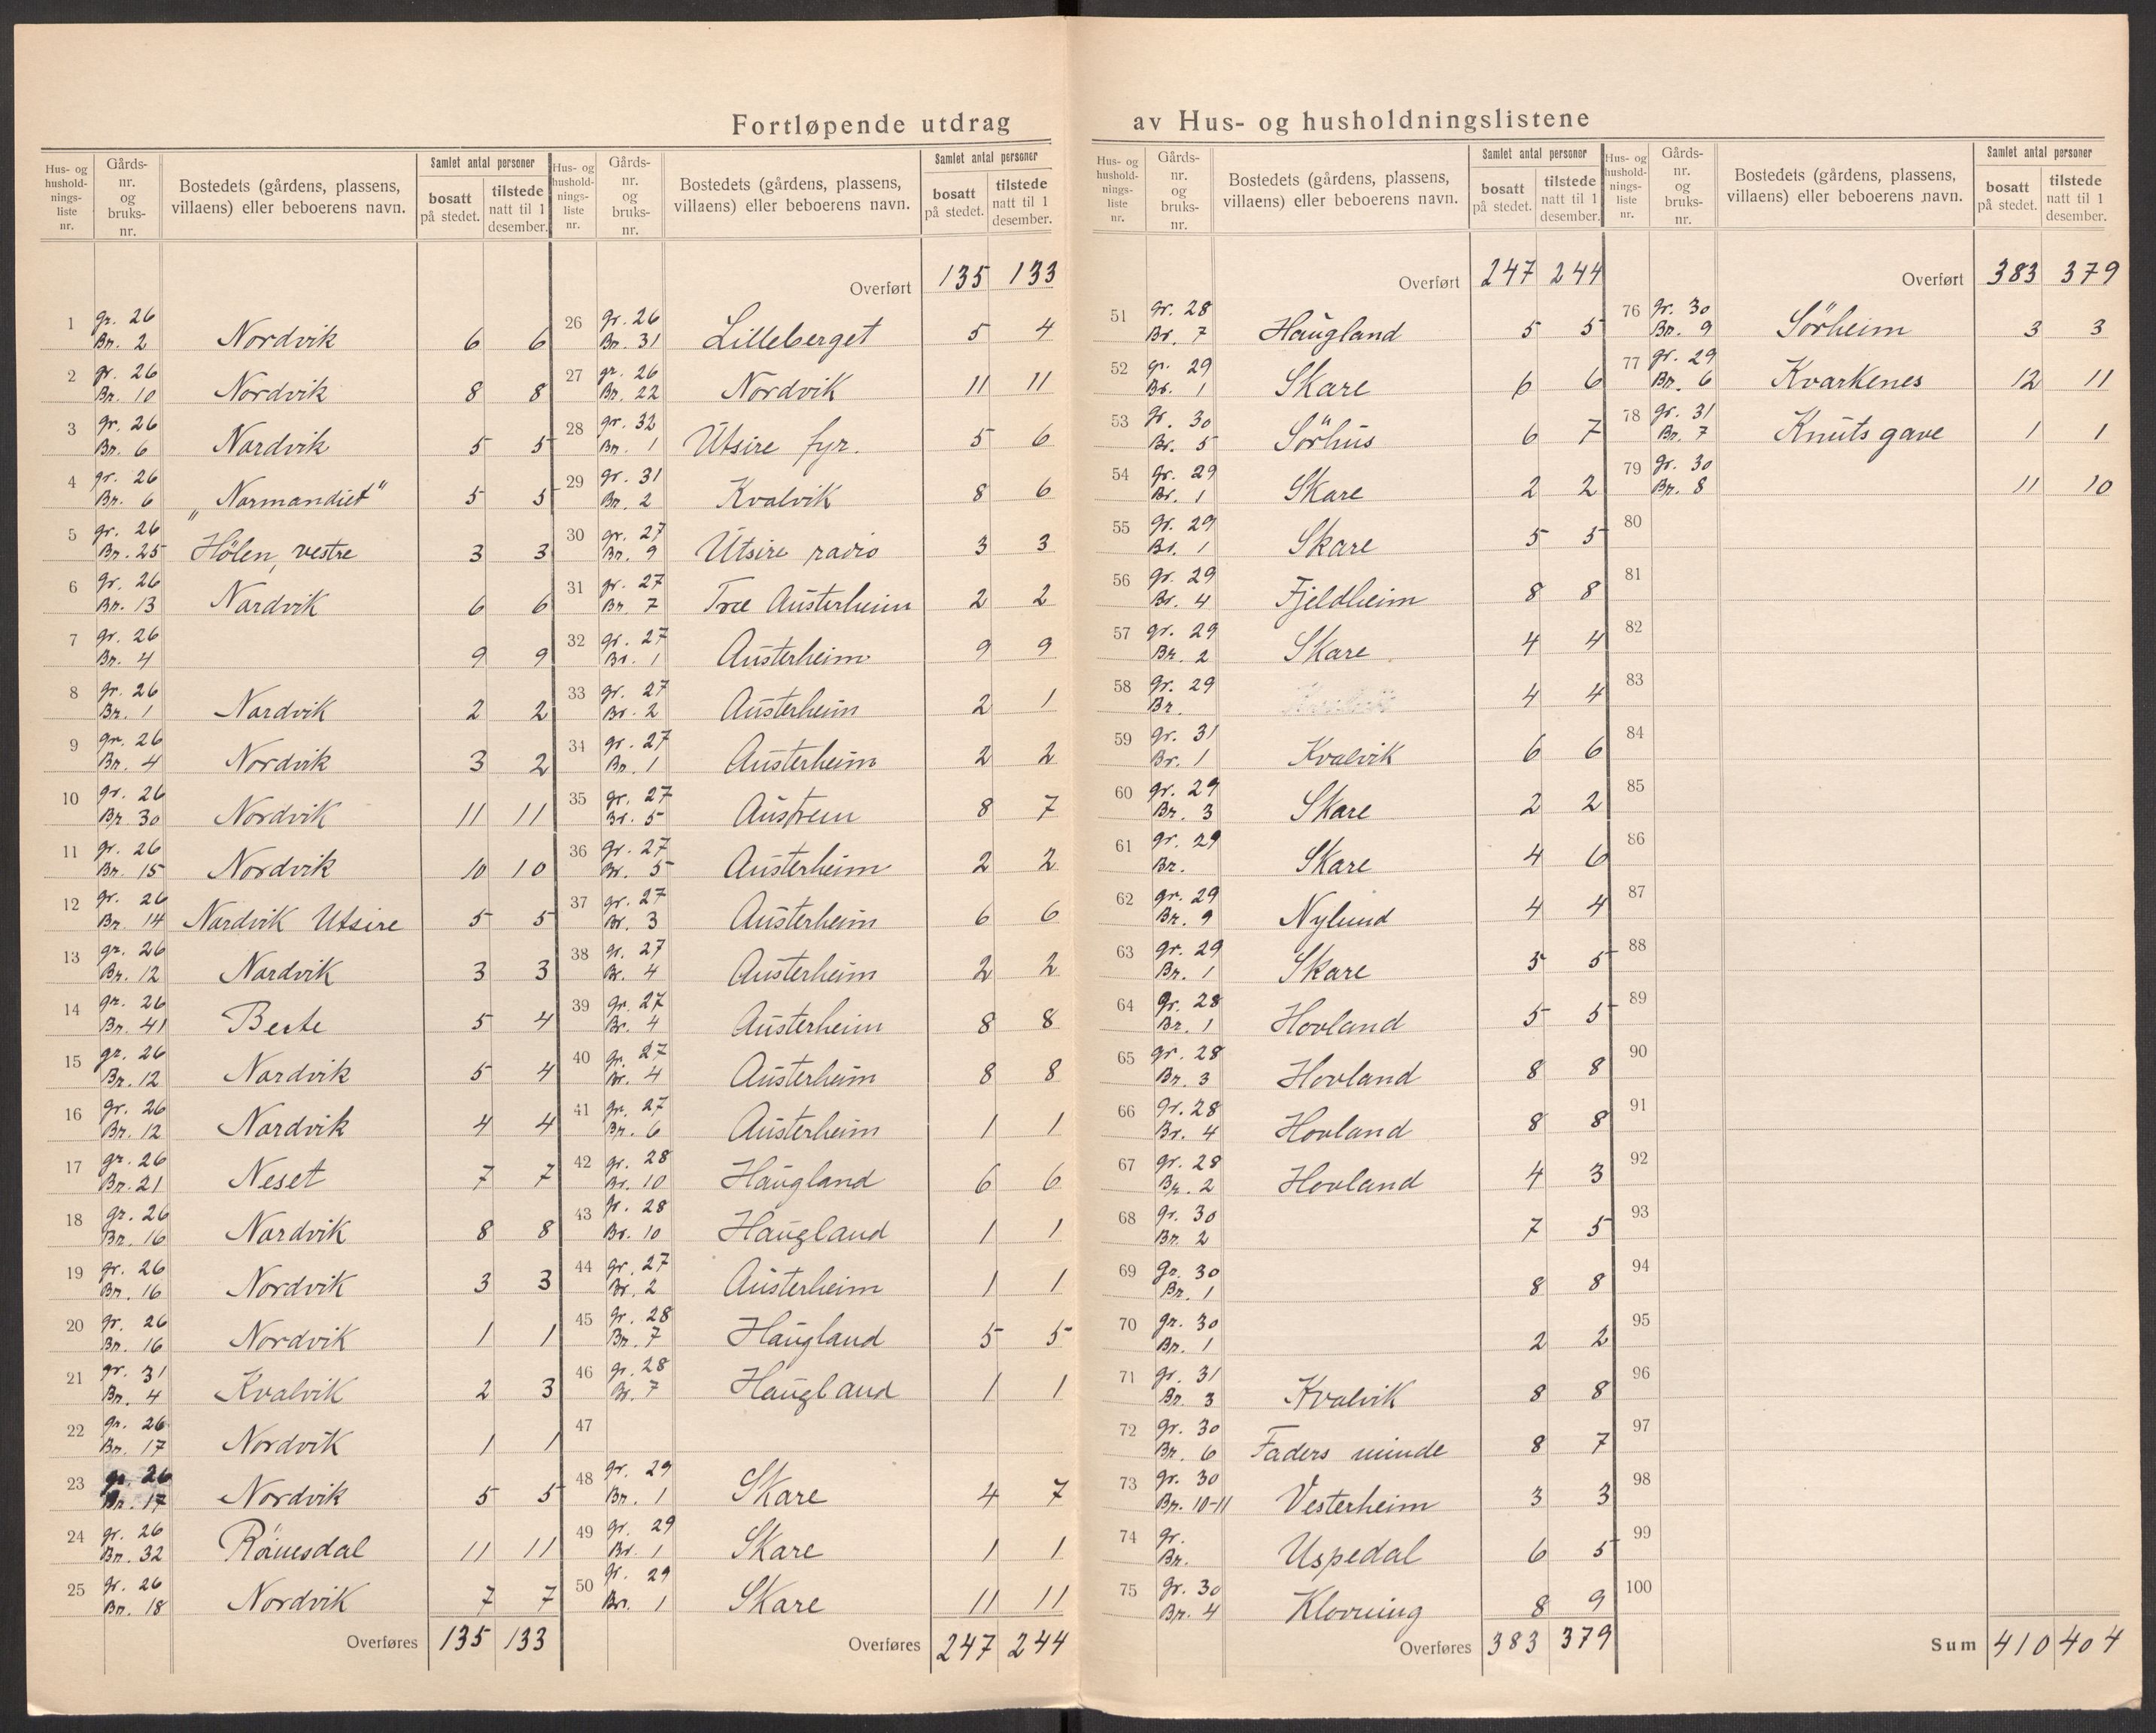 Fortløpende utdrag av Hus- og husholdningslistene
Hus- og hushold- nings- liste nr. | Gårds- nr. og bruks- nr. | Bostedets (gårdens, plassens, villaens) eller beboerens navn. | Samlet antal personer bosatt på stedet. | tilstede natt til 1 desember.
1 gr. 26 Br. 2 Nordvik 6 6
2 gr. 26 Br. 10 Nordvik 8 8
3 gr. 26 Br. 6 Nordvik 5 5
4 gr. 26 Br. 6 „Normandiet" 5 5
5 gr. 26 Br. 25 Hölen, vestre 3 3
6 gr. 26 Br. 13 Nordvik 6 6
7 gr. 26 Br. 4 9 9
8 gr. 26 Br. 1 Nordvik 2 2
9 gr. 26 Br. 4 Nordvik 3 2
10 gr. 26 Br. 30 Nordvik 11 11
11 gr. 26 Br. 15 Nordvik 10 10
12 gr. 26 Br. 14 Nordvik Utsire 5 5
13 gr. 26 Br. 12 Nordvik 3 3
14 gr. 26 Br. 41 5 4
15 gr. 26 Br. 12 Nordvik 5 4
16 gr. 26 Br. 12 Nordvik 4 4
17 gr. 26 Br. 21 Neset 7 7
18 gr. 26 Br. 16 Nordvik 8 8
19 gr. 26 Br. 16 Nordvik 3 3
20 gr. 26 Br. 16 Nordvik 1 1
21 gr. 31 Br. 4 Kvalvik 2 3
22 gr. 26 Br. 17 Nordvik 1 1
23 gr. 26 Br. 17 Nordvik 5 5
24 gr. 26 Br. 32 11 11
25 gr. 26 Br. 18 Nordvik 7 7
Overføres 135 133
Hus- og hushold- nings- liste nr. | Gårds- nr. og bruks- nr. | Bostedets (gårdens, plassens, villaens) eller beboerens navn. | Samlet antal personer bosatt på stedet. | tilstede natt til 1 desember.
Overført 135 133
26 gr. 26 Br. 31 Lilleberget 5 4
27 gr. 26 Br. 22 Nordvik 11 11
28 gr. 32 Br. 1 Utsire fyr. 5 6
29 gr. 31 Br. 2 Kvalvik 8 6
30 gr. 27 Br. 9 Utsire radio 3 3
31 gr. 27 Br. 7 Austerheim 2 2
32 gr. 27 Br. 1 Austerheim 9 9
33 gr. 27 Br. 2 Austerheim 2 1
34 gr. 27 Br. 1 Austerheim 2 2
35 gr. 27 Br. 5 Austrem 8 7
36 gr. 27 Br. 5 Austerheim 2 2
37 gr. 27 Br. 3 Austerheim 6 6
38 gr. 27 Br. 4 Austerheim 2 2
39 gr. 27 Br. 4 Austerheim 8 8
40 gr. 27 Br. 4 Austerheim 8 8
41 gr. 27 Br. 6 Austerheim 1 1
42 gr. 28 Br. 10 Haugland 6 6
43 gr. 28 Br. 10 Haugland 1 1
44 gr. 27 Br. 2 Austerheim 1 1
45 gr. 28 Br. 7 Haugland 5 5
46 gr. 28 Br. 7 Haugland 1 1
47
48 gr. 29 Br. 1 Skare 4 7
49 gr. 29 Br. 1 Skare 1 1
50 gr. 29 Br. 1 Skare 11 11
Overføres 247 244
Hus- og hushold- nings- liste nr. | Gårds- nr. og bruks- nr. | Bostedets (gårdens, plassens, villaens) eller beboerens navn. | Samlet antal personer bosatt på stedet. | tilstede natt til 1 desember.
Overført 247 244
51 gr. 28 Br. 7 Haugland 5 5
52 gr. 29 Br. 1 Skare 6 6
53 gr. 30 Br. 5 Sörhus 6 7
54 gr. 29 Br. 1 Skare 2 2
55 gr. 29 Br. 1 Skare 5 5
56 gr. 29 Br. 4 Fjeldheim 8 8
57 gr. 29 Br. 2 Skare 4 4
58 gr. 29 Br. 4 4
59 gr. 31 Br. 1 Kvalvik 6 6
60 gr. 29 Br. 3 Skare 2 2
61 gr. 29 Br. Skare 4 6
62 gr. 29 Br. 9 Nylund 4 4
63 gr. 29 Br. 1 Skare 5 5
64 gr. 28 Br. 1 Hovland 5 5
65 gr. 28 Br. 3 Hovland 8 8
66 gr. 28 Br. 4 Hovland 8 8
67 gr. 28 Br. 2 Hovland 4 3
68 gr. 30 Br. 2 7 5
69 gr. 30 Br. 1 8 8
70 gr. 30 Br. 1 2 2
71 gr. 31 Br. 3 Kvalvik 8 8
72 gr. 30 Br. 6 Faders minde 8 7
73 gr. 30 Br. 10-11 Vesterheim 3 3
74 gr. Br. Uspedal 6 5
75 gr. 30 Br. 4 Klovning 8 9
Overføres 383 379
Hus- og hushold- nings- liste nr. | Gårds- nr. og bruks- nr. | Bostedets (gårdens, plassens, villaens) eller beboerens navn. | Samlet antal personer bosatt på stedet. | tilstede natt til 1 desember.
Overført 383 379
76 gr. 30 Br. 9 Sörheim 3 3
77 gr. 29 Br. 6 Kvarkenes 12 11
78 gr. 31 Br. 7 Knuts gave 1 1
79 gr. 30 Br. 8 11 10
80
81
82
83
84
85
86
87
88
89
90
91
92
93
94
95
96
97
98
99
100
Sum 410 404